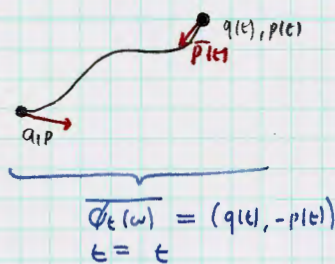 q(t), p(t)
p̄(t)
q,p
\overline{ϕ_t(ω)} = (q(t), -p(t))
t = t